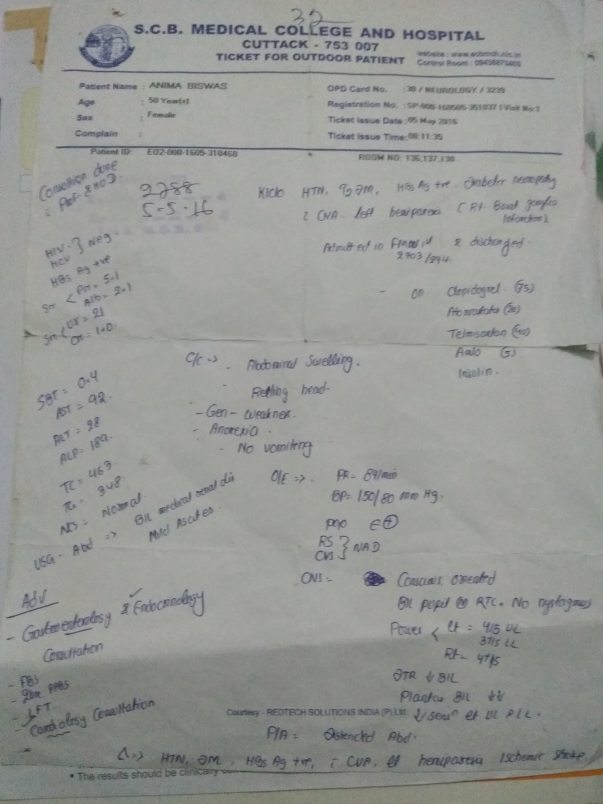 32
S.C.B. MEDICAL COLLEGE AND HOSPITAL
CUTTACK - 753 007
TICKET FOR OUTDOOR PATIENT
Website : www.scbmch.nic.in
Control Room :
Patient Name : ANIMA BISWAS
Age : 50 Year(s)
Sex : Female
Complain :
OPD Card No. : 30 / NEUROLOGY / 3239
Registration No. :
Ticket Issue Date : 05 May 2016
Ticket Issue Time : 08:11:35
Patient ID: E02-000-1605-310468
ROOM NO: 136,137,138
2288
5-5-16
K/c/o HTN, DM, HBs Ag +ve. Diabetic neuropathy
CVA. left hemiparesis (Rt. Basal ganglia
infarction).
Admitted in & discharged.
2903/
on Clopidogrel (75)
Telmisartan (40)
Amlo (5)
Insulin.
HIV } Neg
HCV
HBs Ag +ve
Sr < = 5.1
= 2.1
Sr < Ur = 21
Cr = 1.0
SBT = 0.4
AST = 92
ALT = 28
ALP = 189
TC = 463
TG = 348
NCS = Normal
USG - Abd => B/L medical renal dis
Mild Ascites.
C/C -> . Abdominal Swelling.
- Reeling head
- Gen- weakness
- Anorexia.
- No vomiting
O/E =>. PR = 89/min
BP = 150/80 mm Hg.
RS } NAD
CVS
CNS = Conscious, oriented
B/L pupil RTL. No nystagmus
Power < Lt = 4/5 UL
3+/5 LL
Rt = 4+/5
DTR ↓ B/L
Plantar B/L ↓↓
↓ sens Lt UL & LL.
P/A = Distended Abd.
Adv
- Gastroenterology & Endocrinology
Consultation
- FBS
- 2hr PPBS
- LFT
- Cardiology Consultation
Courtesy - REDTECH SOLUTIONS INDIA (P) Ltd.
HTN, DM, HBs Ag +ve, CVA, Lt hemiparesis Ischemic Stroke.
• The results should be clinically